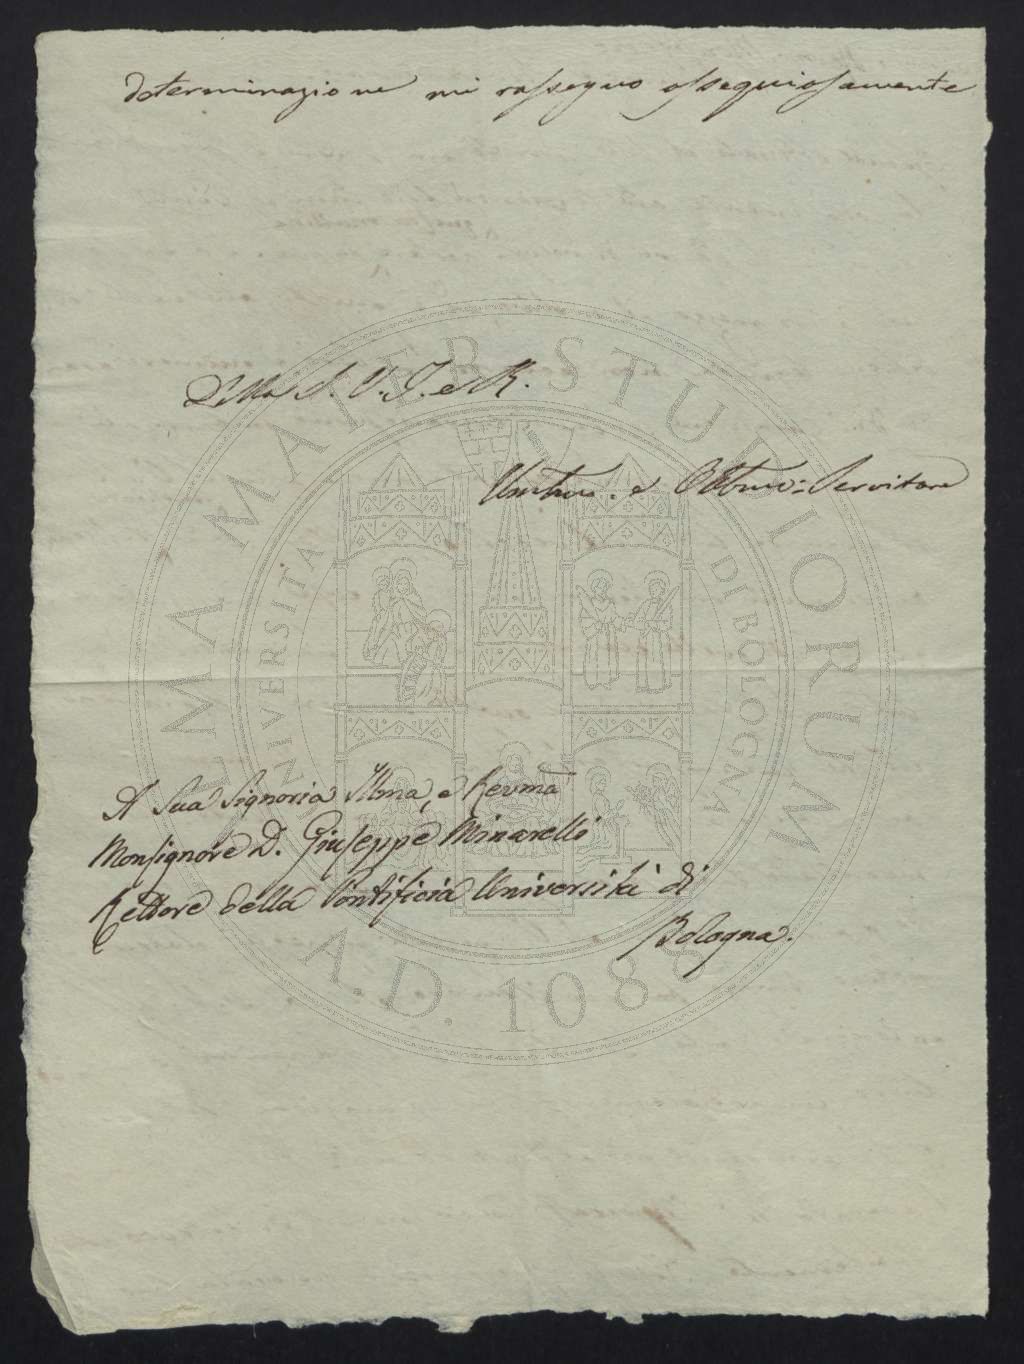 determinazione mi rassegno ossequiosamente
Della S. V. I. e R.
Umilmo. e Obbmo: Servitore
A Sua Signoria Illma, e Revma
Monsignore D. Giuseppe Minarelli
Rettore della Pontificia Università di
Bologna.
ALMA MATER STUDIORUM
UNIVERSITÀ DI BOLOGNA
A.D. 1088